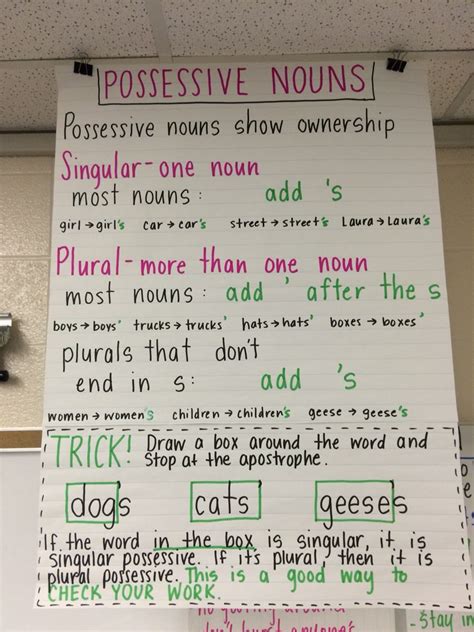 POSSESSIVE NOUNS
Possessive nouns show ownership
Singular-one noun
most nouns: add 's
girl → girl's car → car's street → street's Laura → Laura's
Plural-more than one noun
most nouns: add ' after the s
boys → boys' trucks → trucks' hats → hats' boxes → boxes'
plurals that don't
end in s: add 's
women → women's children → children's geese → geese's
TRICK! Draw a box around the word and
stop at the apostrophe.
dog's cats' geese's
If the word in the box is singular, it is
singular possessive. If it's plural, then it is
plural possessive. This is a good way to
CHECK YOUR WORK.
-Stay in